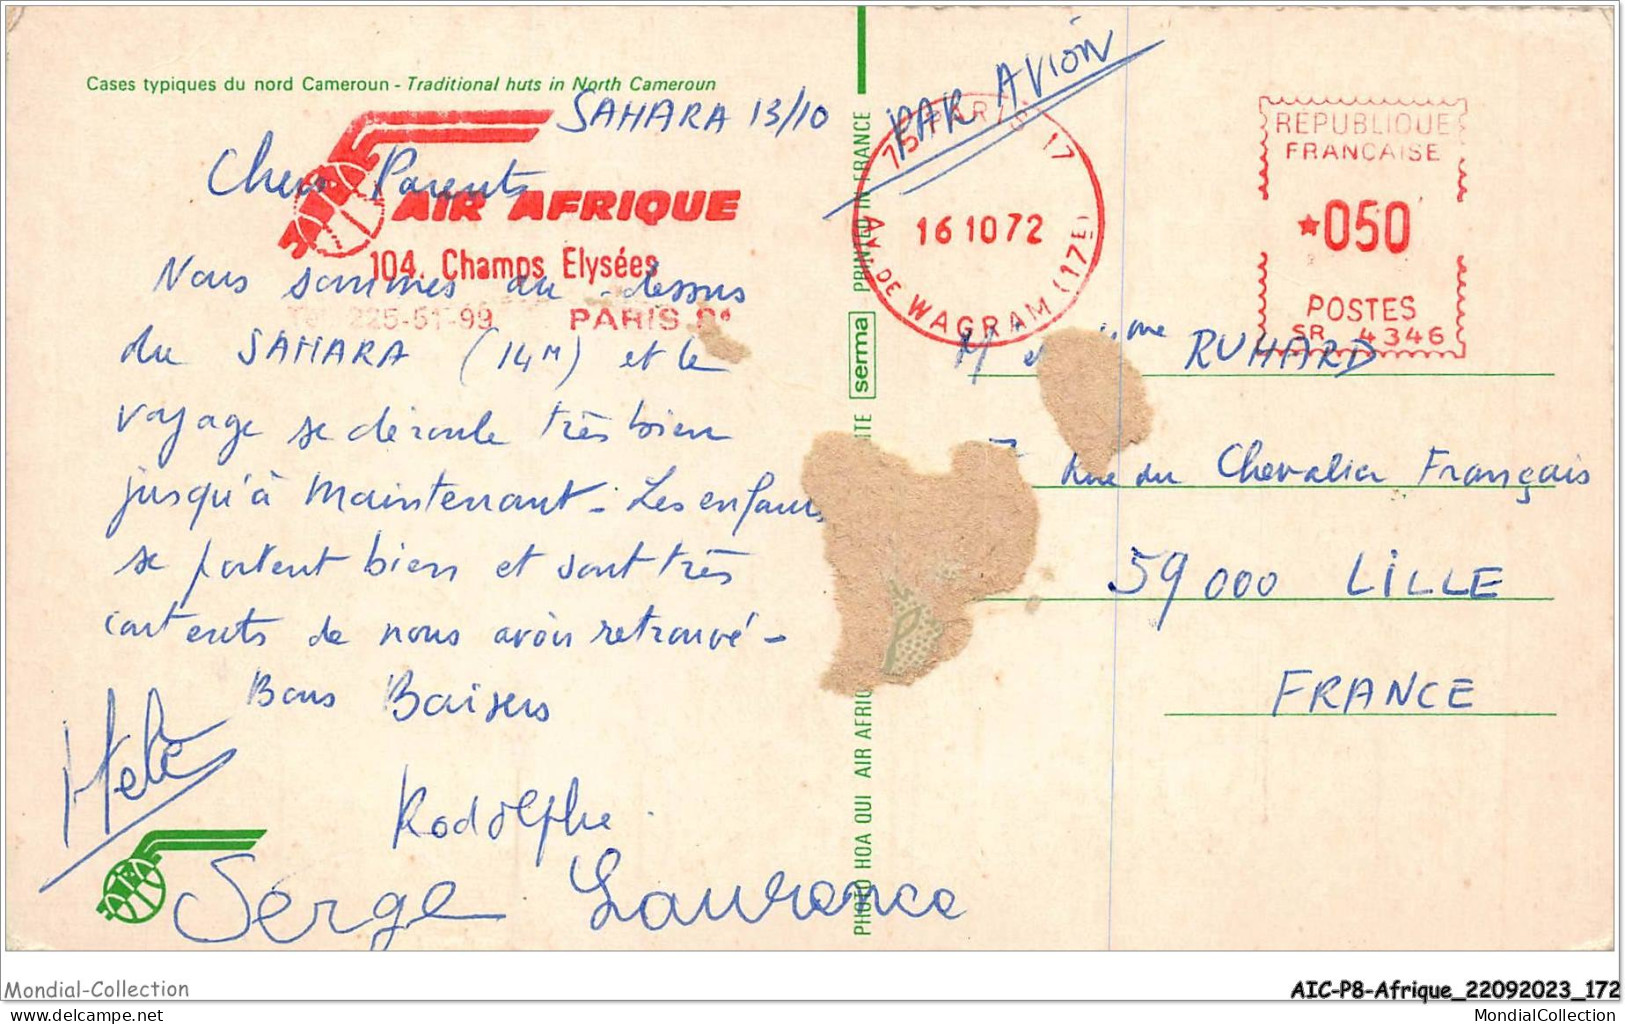 Cases typiques du nord Cameroun - Traditional huts in North Cameroun
SAHARA 13/10
Chers Parents
AIR AFRIQUE
104. Champs Elysées
Tel 225-51-99 PARIS 8e
Nous sommes au dessus
du SAHARA (14H) et le
voyage se déroule très bien
jusqu'à Maintenant - Les enfants
se portent bien et sont très
contents de nous avoir retrouvé -
Bons Baisers
Rodolphe
Serge Laurence
PAR AVION
75 PARIS 17
16 10 72
AV. DE WAGRAM (17E)
REPUBLIQUE
FRANCAISE
*050
POSTES
SR 4346
M et me RUHARD
Rue du Chevalier Français
59000 LILLE
FRANCE
PRINTED IN FRANCE
serma
PHOTO HOA QUI AIR AFRIQ
Mondial-Collection
AIC-P8-Afrique_22092023_172
MondialCollection
MondialCollection